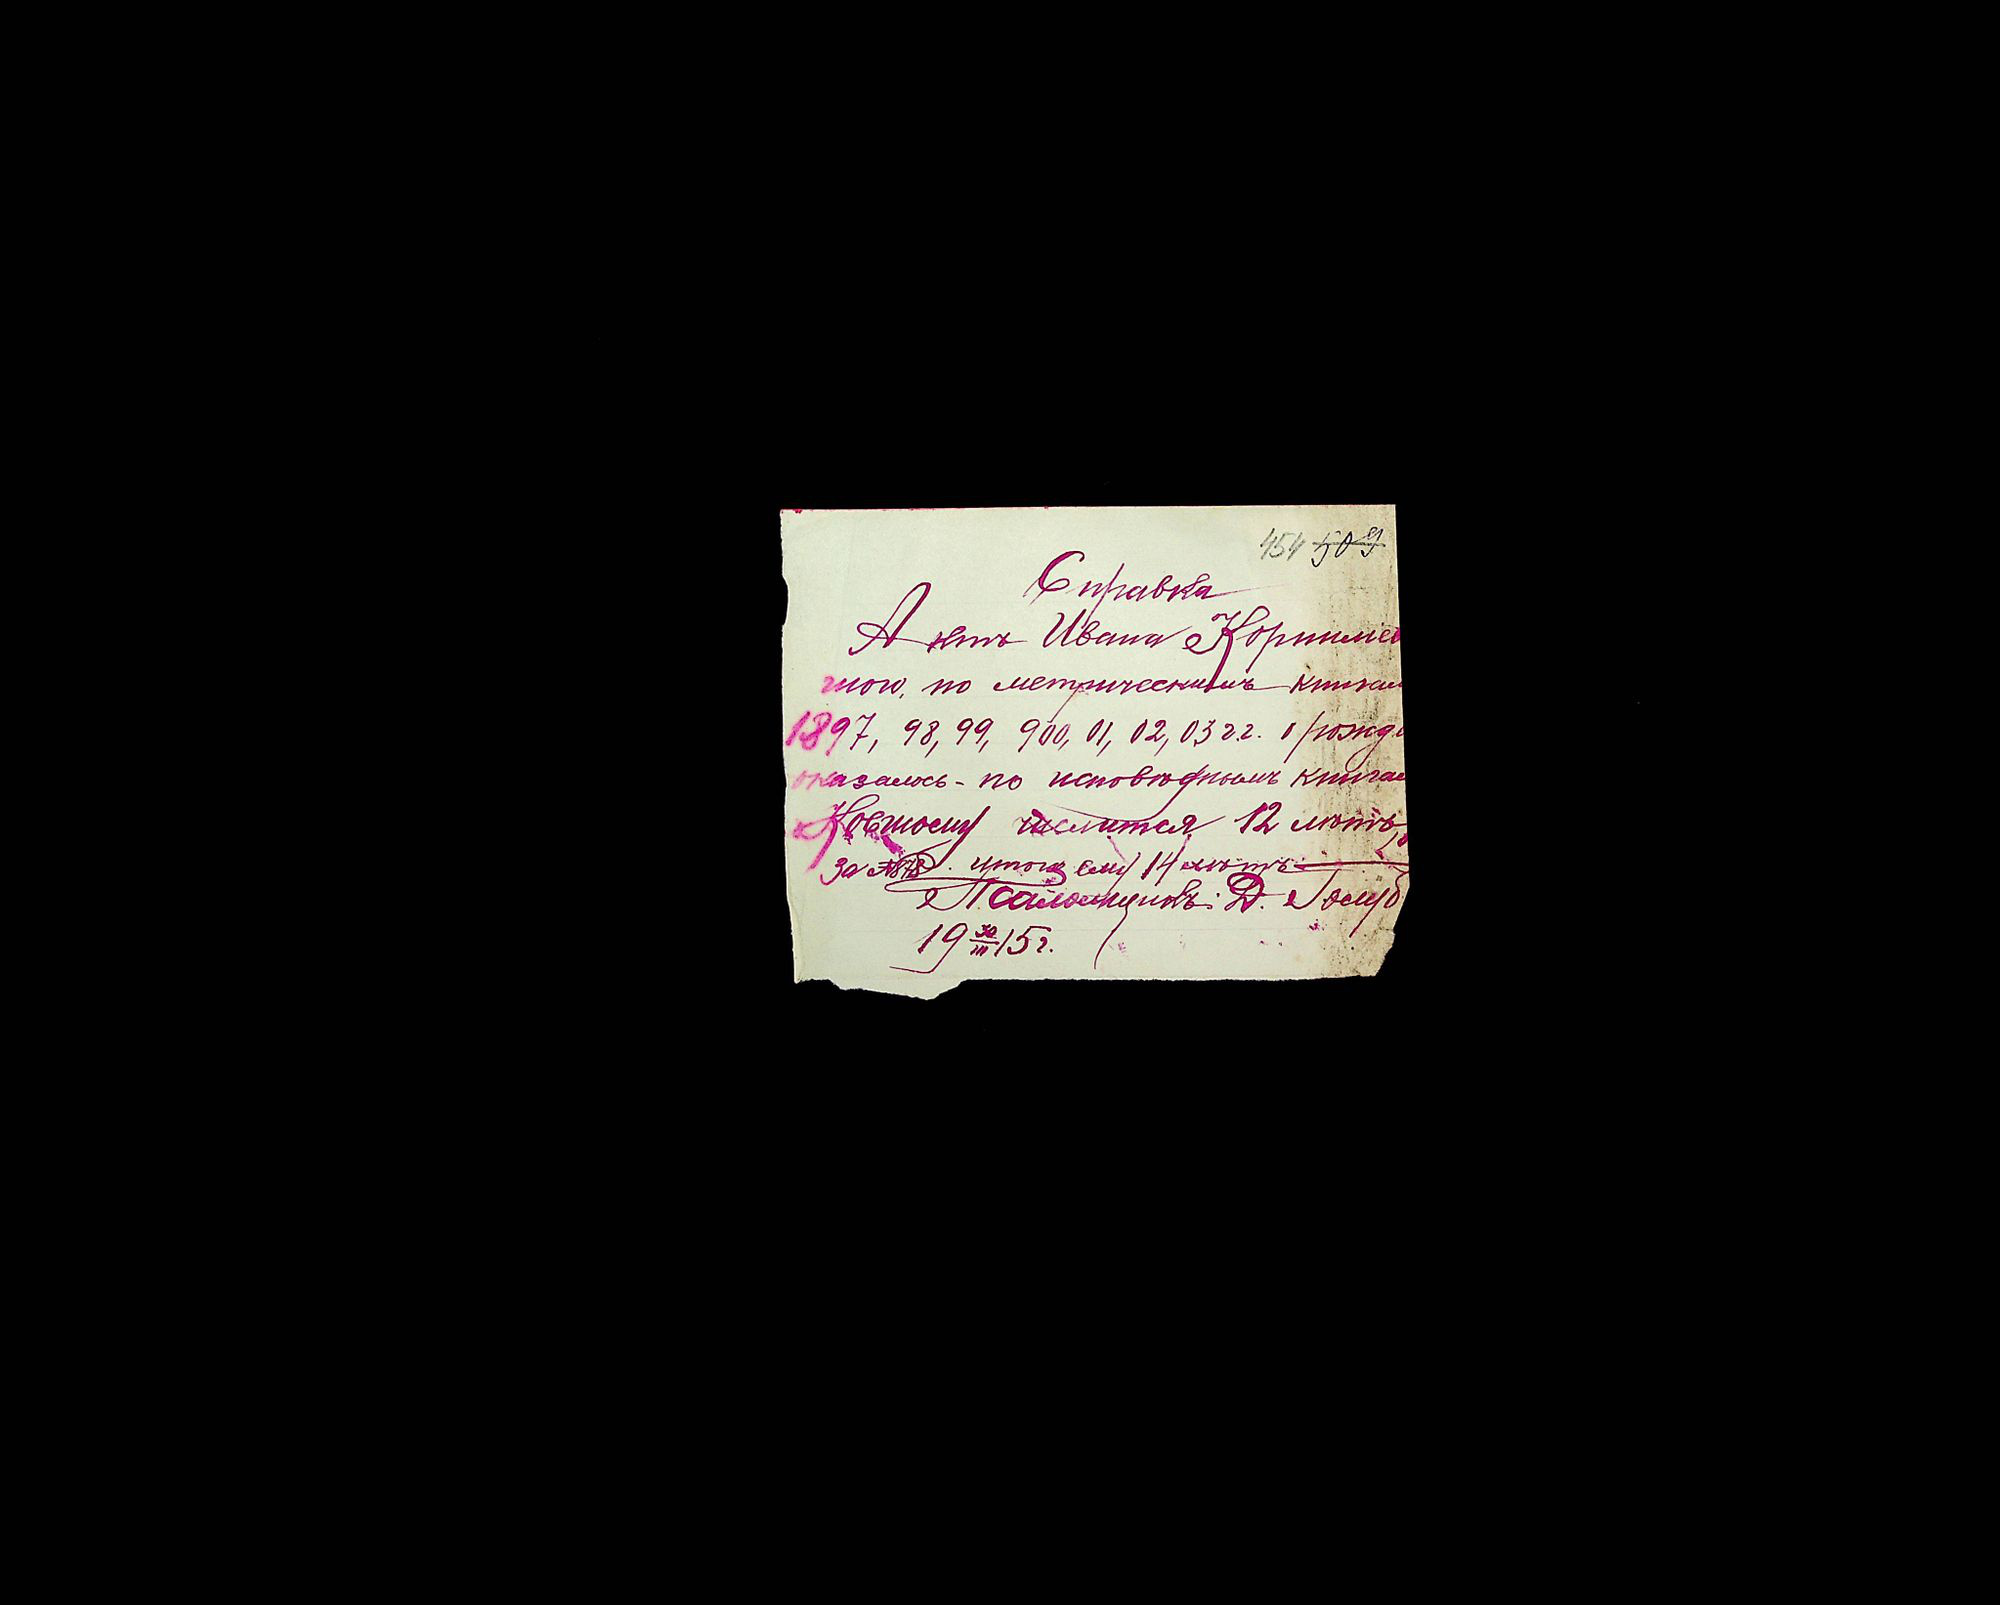 454 509
Справка
А лѣтъ Ивана Корнилiев
ного, по метрическимъ книгам
1897, 98, 99, 900, 01, 02, 03 г.г. о рожд.
оказалось - по исповѣднымъ книгам
числится 12 лѣтъ
за итого ему 14 лѣтъ
Псаломщикъ: Д. Голуб
19 30/III 15 г.